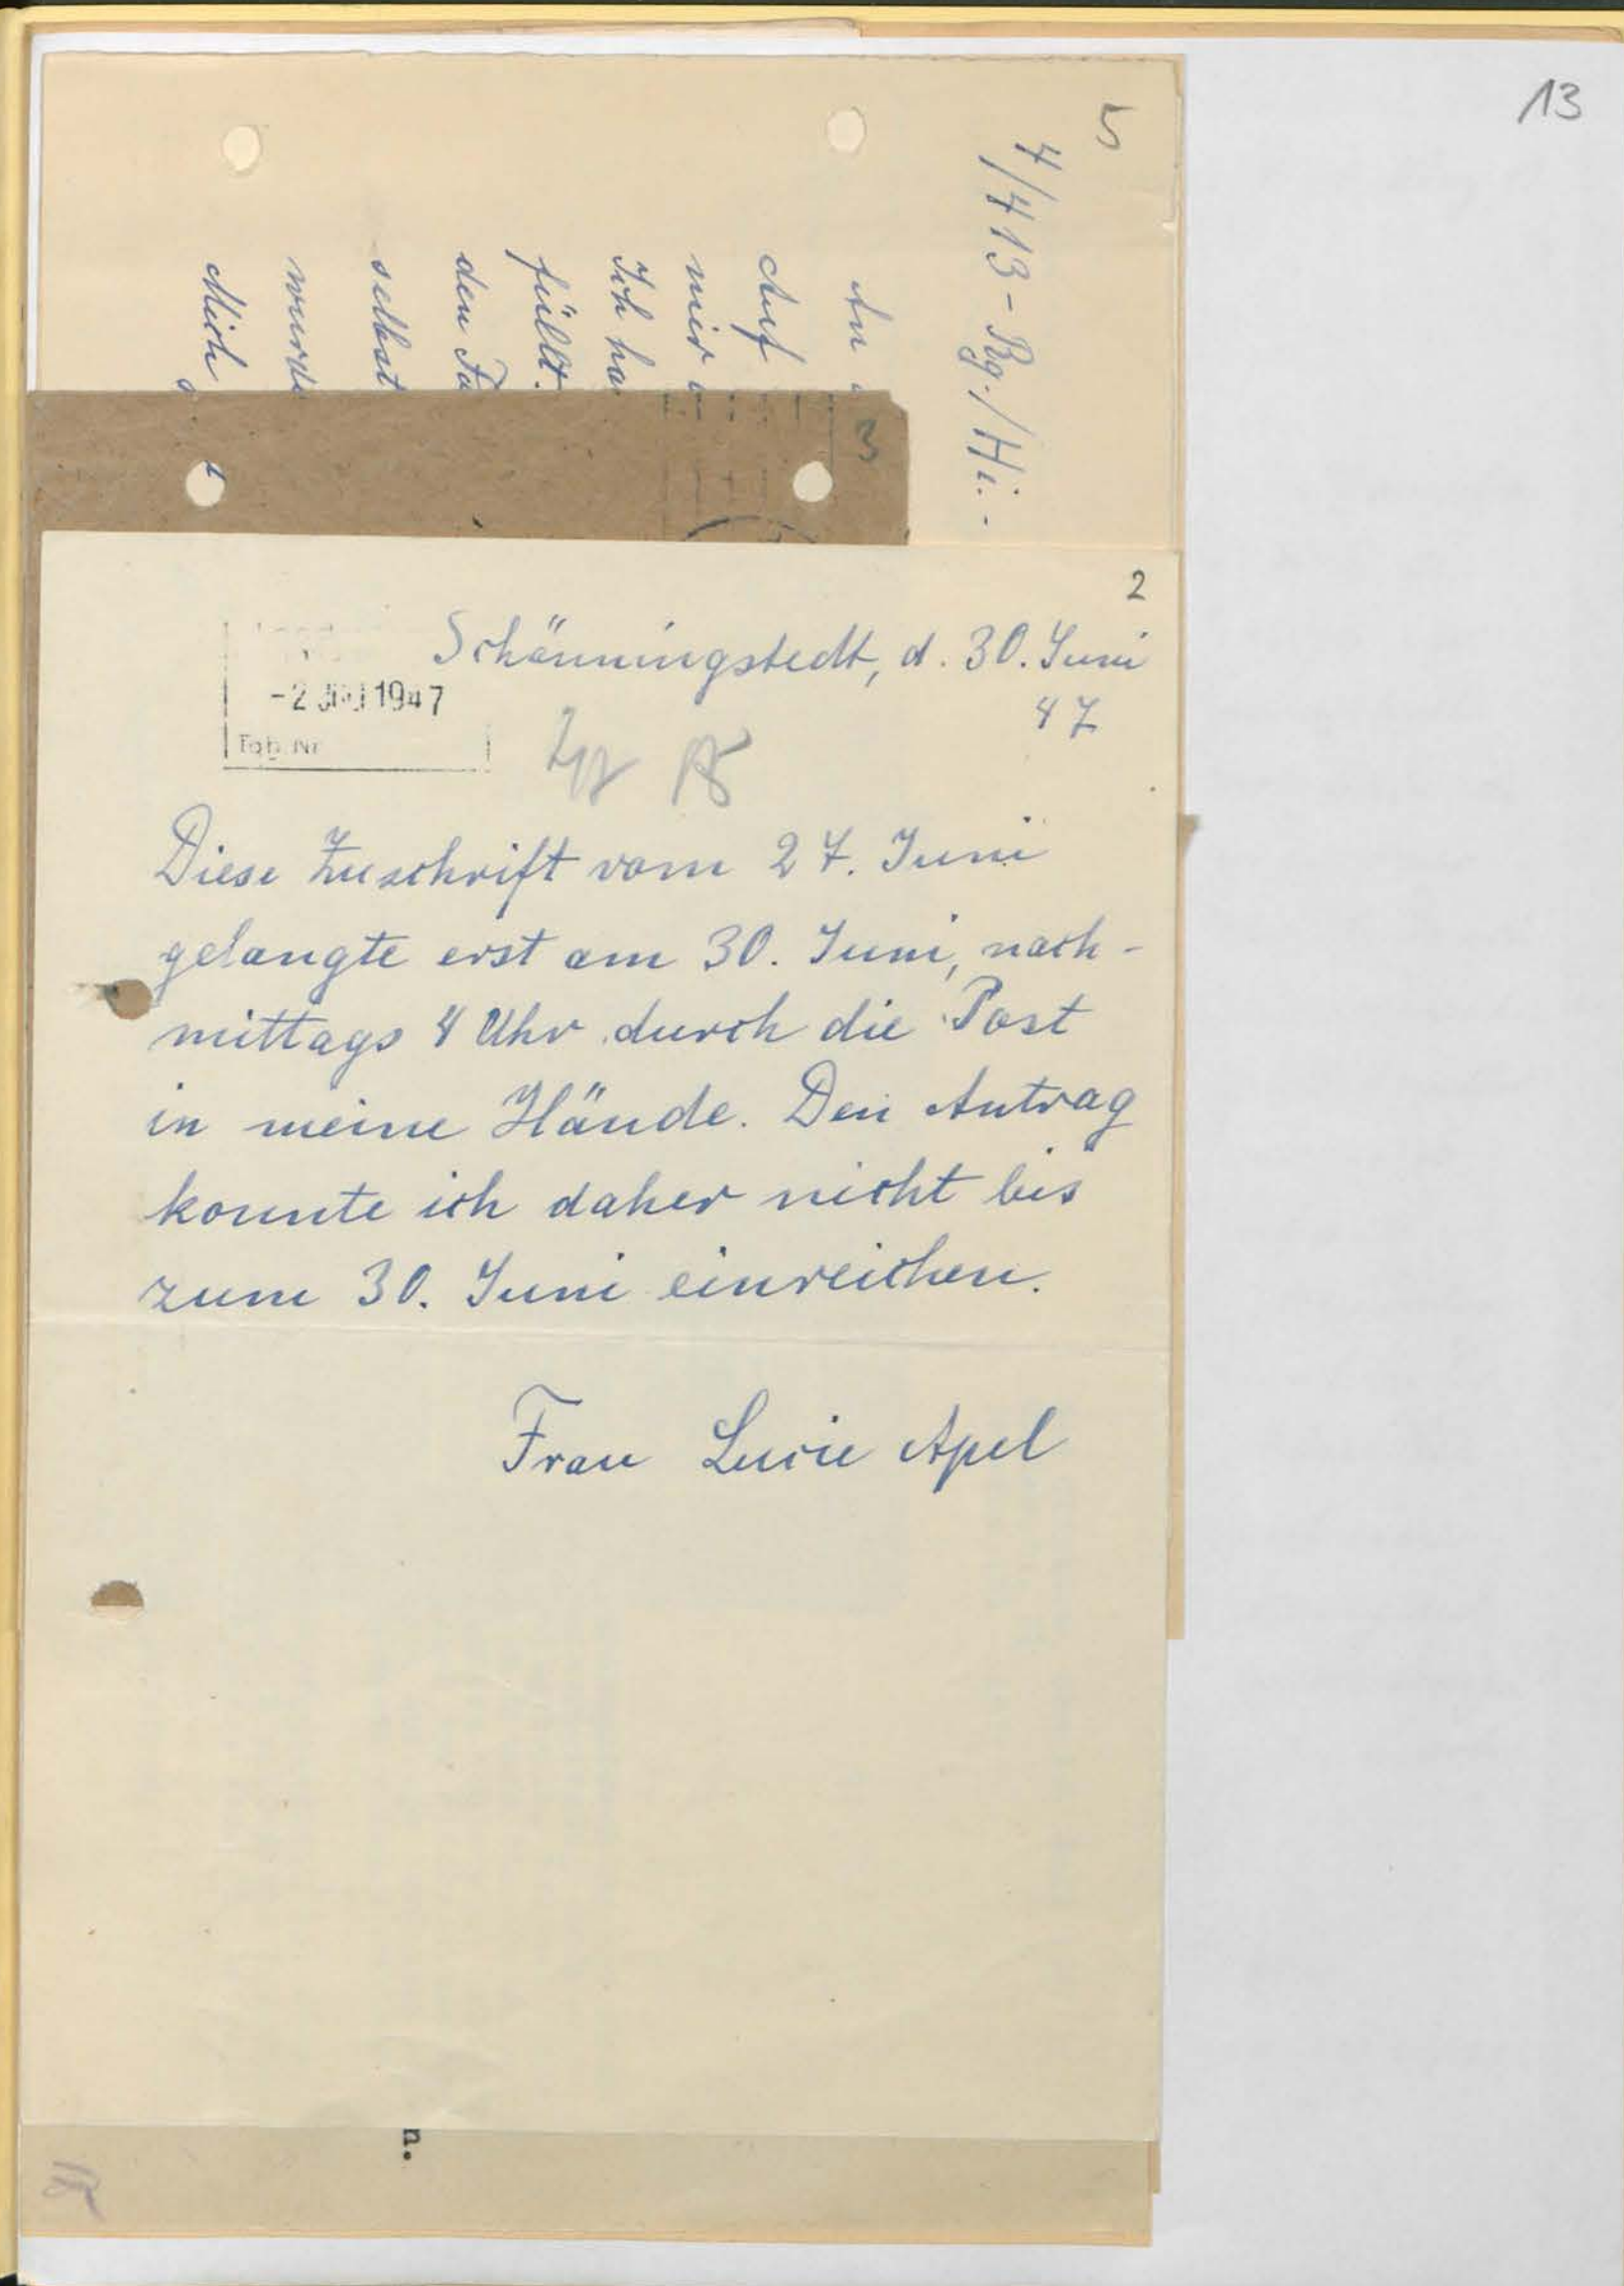 13
5
4/413 - Bg./Hi. -
An
Auf
mir
Ich ha
füllt.
den Fa
selbst
wurde
Mich
3
2
Schönningstedt, d. 30. Juni
47
-2 JULI 1947
Tgb. Nr.
Diese Zuschrift vom 27. Juni
gelangte erst am 30. Juni, nach-
mittags 4 Uhr durch die Post
in meine Hände. Den Antrag
konnte ich daher nicht bis
zum 30. Juni einreichen.
Frau Lucie Apel
n.